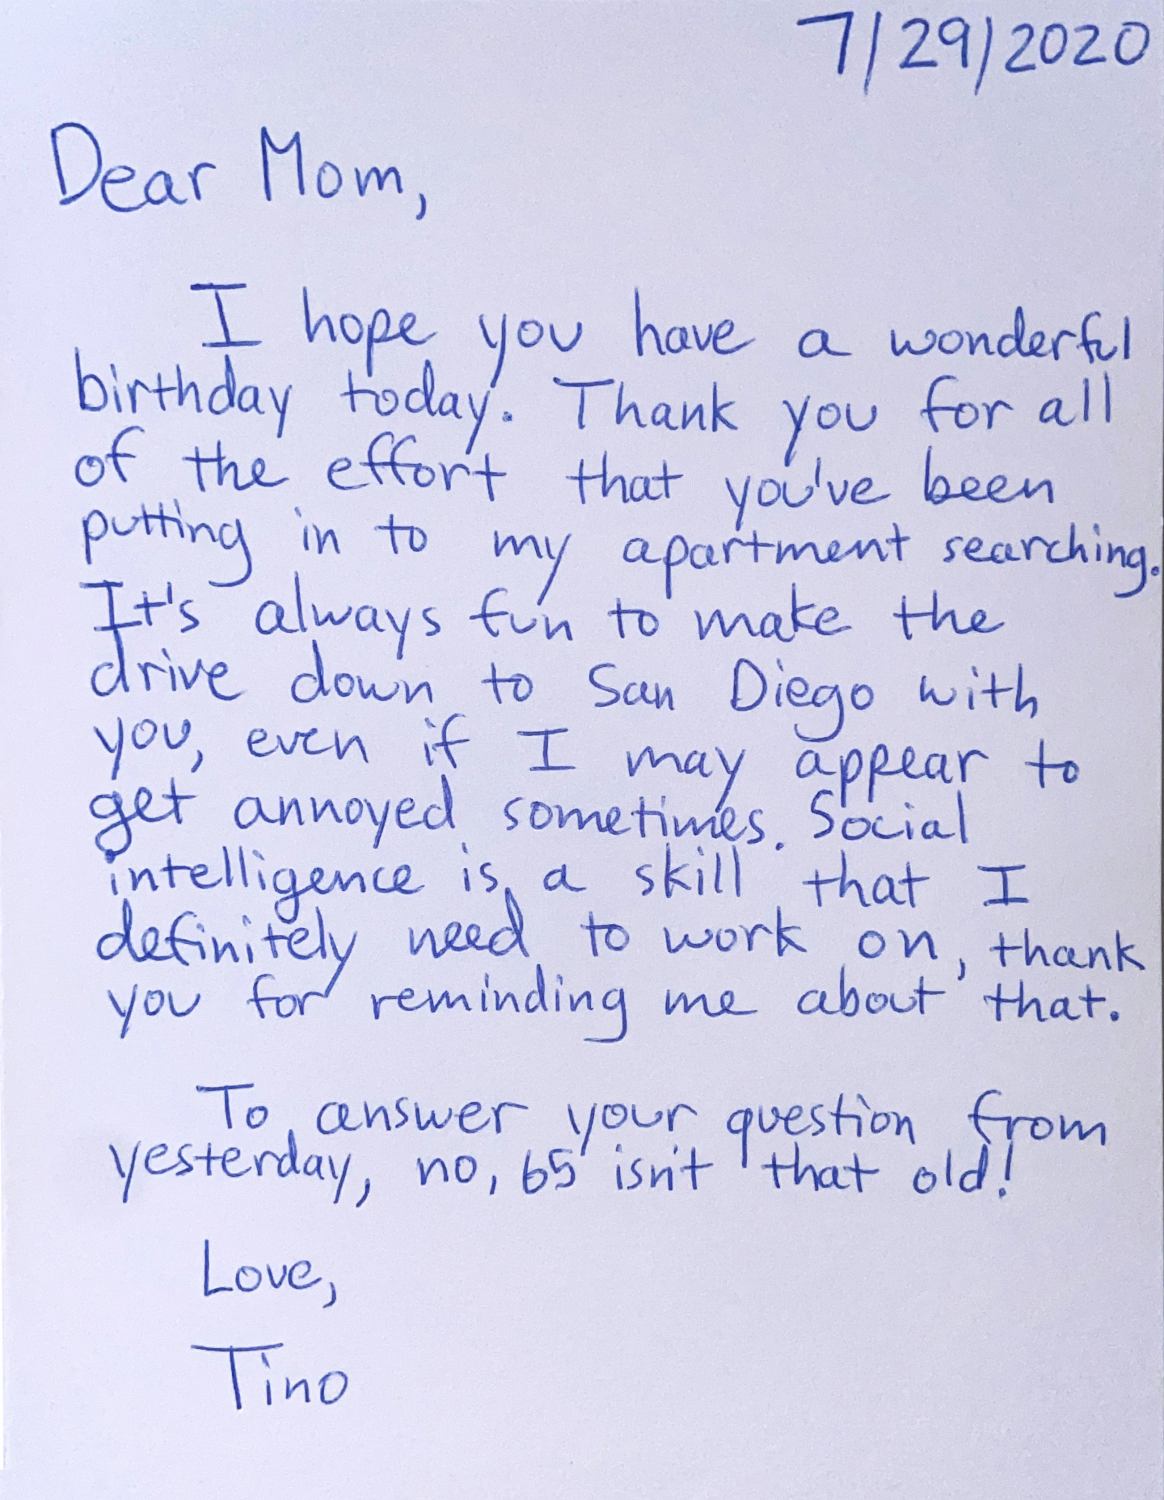 7/29/2020
Dear Mom,
I hope you have a wonderful
birthday today. Thank you for all
of the effort that you've been
putting in to my apartment searching.
It's always fun to make the
drive down to San Diego with
you, even if I may appear to
get annoyed sometimes. Social
intelligence is a skill that I
definitely need to work on, thank
you for reminding me about that.
To answer your question from
yesterday, no, 65 isn't that old!
Love,
Tino